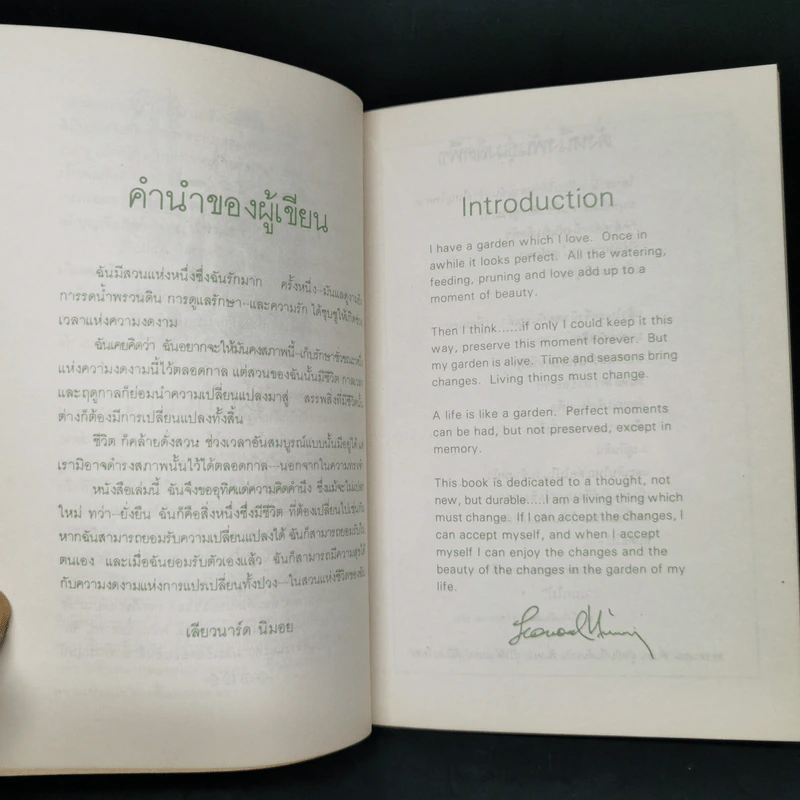 คำนำของผู้เขียน
ฉันมีสวนแห่งหนึ่งซึ่งฉันรักมาก ครั้งหนึ่ง
การรดน้ำพรวนดิน การดูแลรักษา---และความรัก ได้ชุบชูให้เกิด
เวลาแห่งความงดงาม
ฉันเคยคิดว่า ฉันอยากจะให้มันคงสภาพนี้--เก็บรักษา
แห่งความงดงามนี้ไว้ตลอดกาล แต่สวนของฉันนั้นมีชีวิต
และฤดูกาลก็ย่อมนำความเปลี่ยนแปลงมาสู่ สรรพสิ่งที่มีชีวิต
ต่างก็ต้องมีการเปลี่ยนแปลงทั้งสิ้น
ชีวิต ก็คล้ายดั่งสวน ช่วงเวลาอันสมบูรณ์แบบนั้นมีอยู่ได้
เรามิอาจดำรงสภาพนั้นไว้ได้ตลอดกาล---นอกจากใน
หนังสือเล่มนี้ ฉันจึงขออุทิศแด่ความคิดคำนึง ซึ่งแม้จะไม่
ใหม่ ทว่า-ยั่งยืน ฉันก็คือสิ่งหนึ่งซึ่งมีชีวิต ที่ต้องเปลี่ยนไป
หากฉันสามารถยอมรับความเปลี่ยนแปลงได้ ฉันก็สามารถยอมรับ
ตนเอง และเมื่อฉันยอมรับตัวเองแล้ว ฉันก็สามารถมีความสุข
กับความงดงามแห่งการแปรเปลี่ยนทั้งปวง---ในสวนแห่งชีวิตของ
เลียวนาร์ด นิมอย
Introduction
I have a garden which I love. Once in
awhile it looks perfect. All the watering,
feeding, pruning and love add up to a
moment of beauty.
Then I think......if only I could keep it this
way, preserve this moment forever. But
my garden is alive. Time and seasons bring
changes. Living things must change.
A life is like a garden. Perfect moments
can be had, but not preserved, except in
memory.
This book is dedicated to a thought, not
new, but durable.....I am a living thing which
must change. If I can accept the changes, I
can accept myself, and when I accept
myself I can enjoy the changes and the
beauty of the changes in the garden of my
life.
Leonard Nimoy